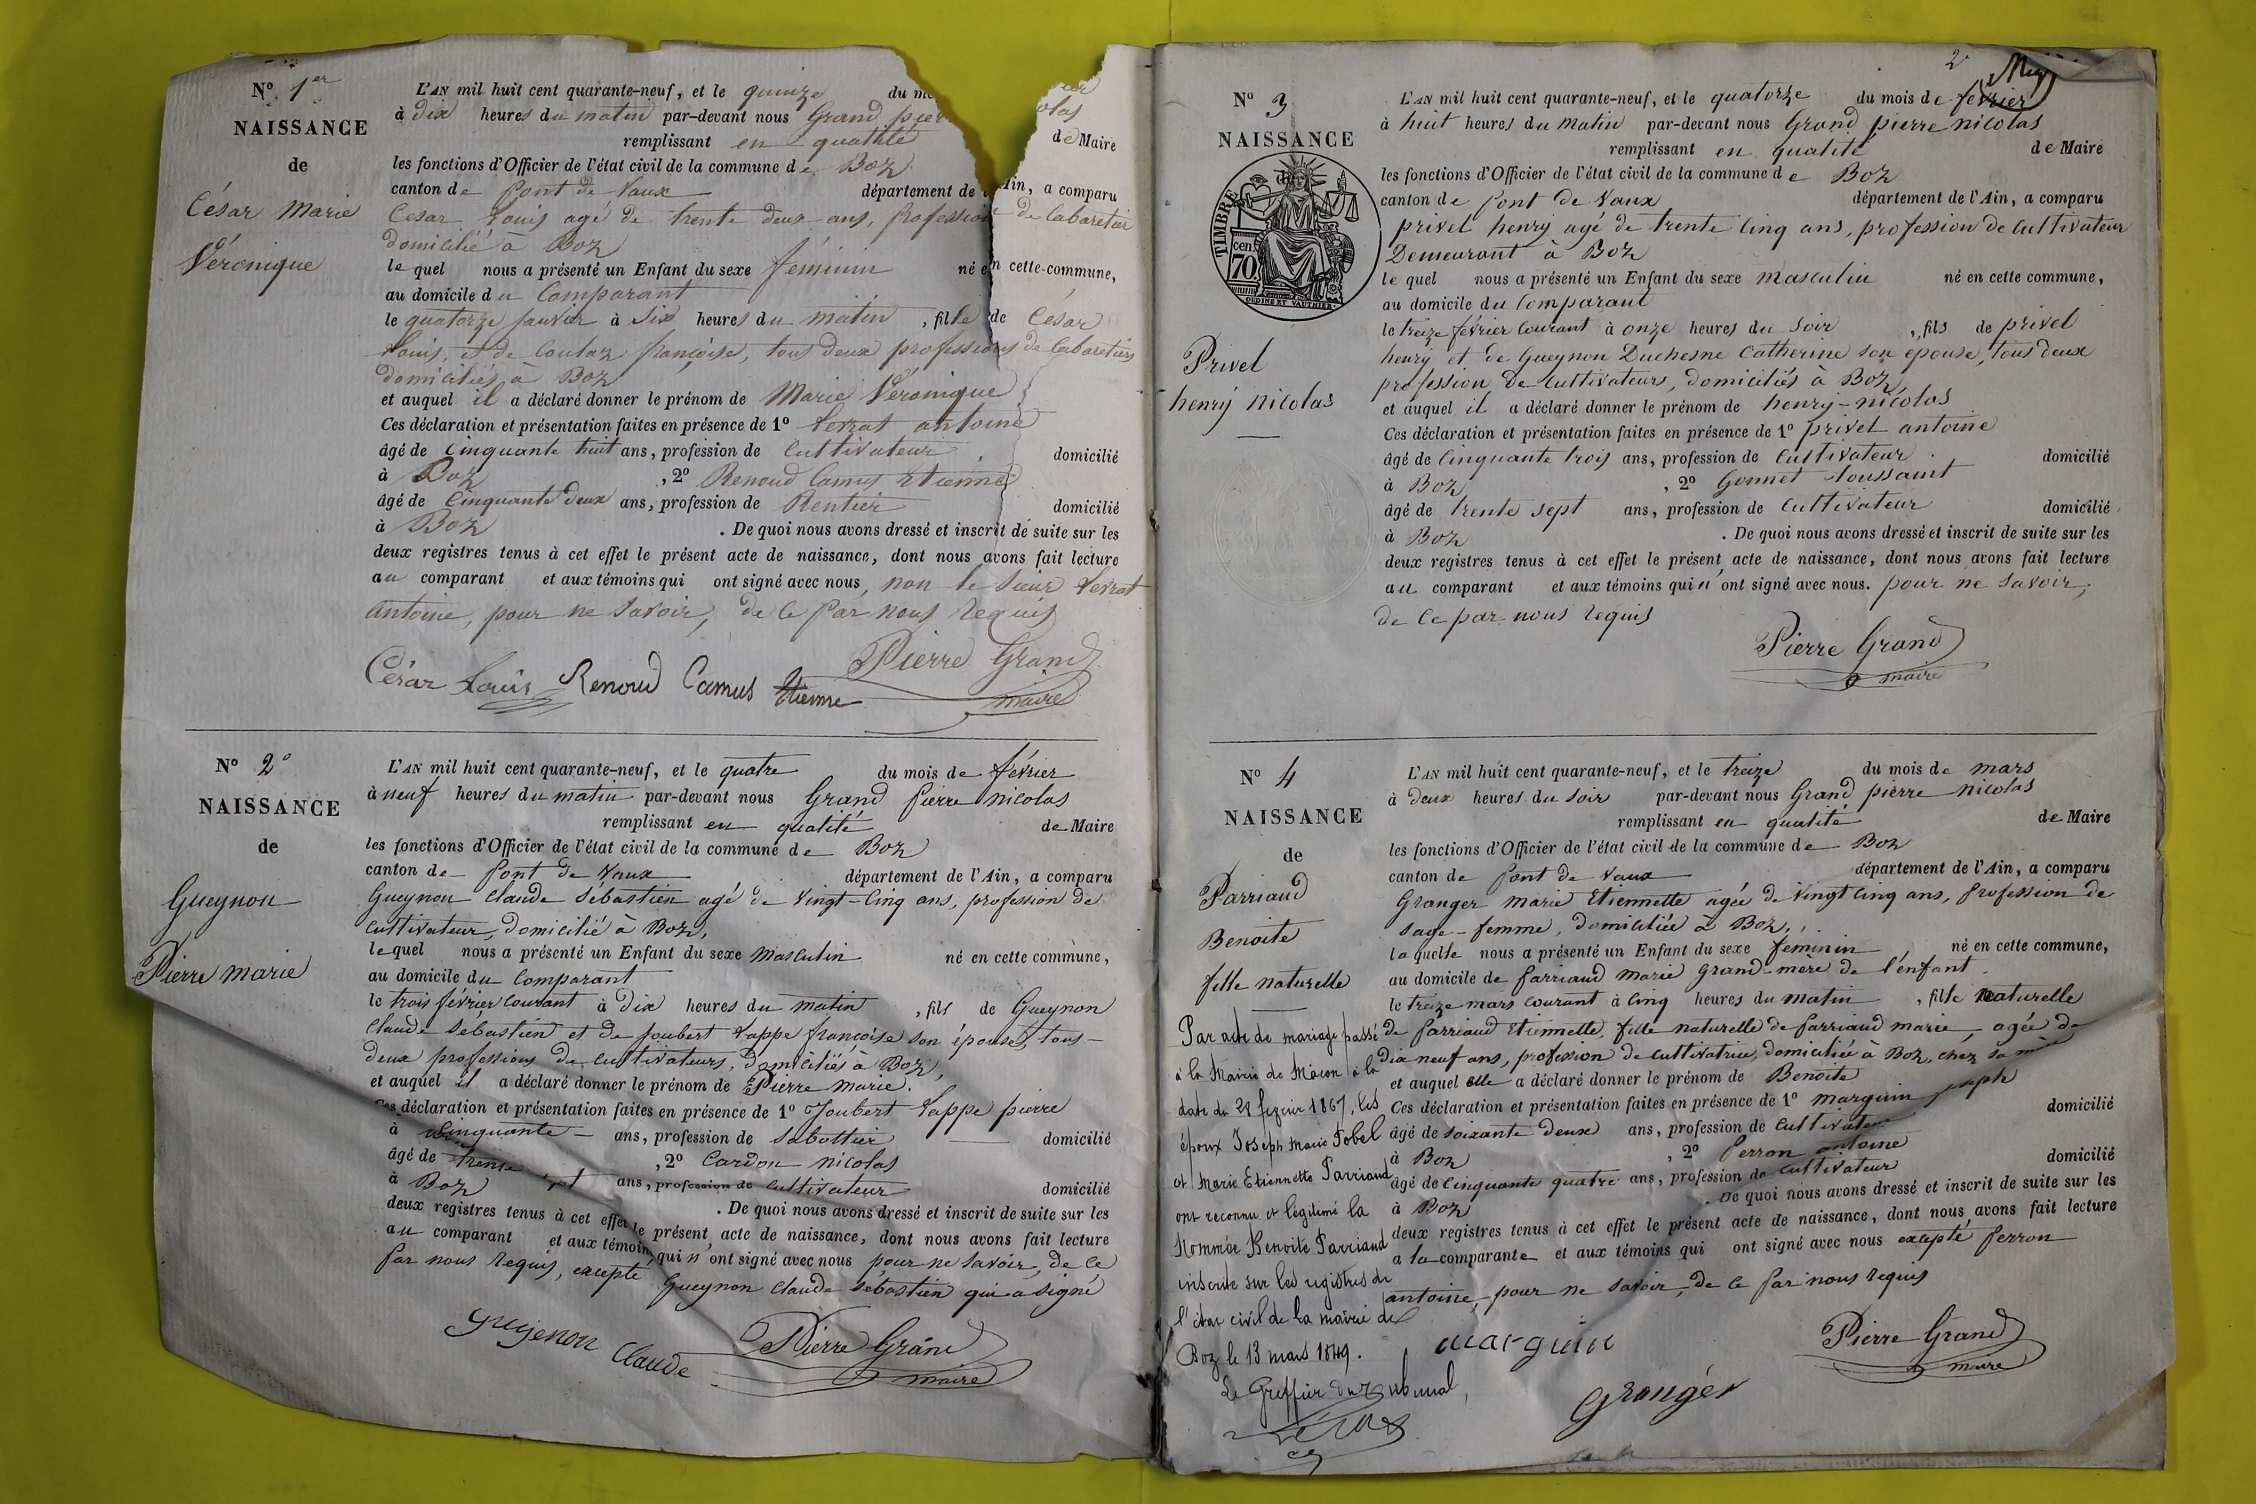 Nº 1er
NAISSANCE
de
César Marie
Véronique
L'AN mil huit cent quarante-neuf, et le quinze du
à dix heures du matin par-devant nous Grand
remplissant en qualité de Maire
les fonctions d'Officier de l'état civil de la commune de Boz
canton de Pont de Vaux département de l'Ain, a comparu
César Louis agé de trente deux ans, profession de Cabaretier
domicilié à Boz
lequel nous a présenté un Enfant du sexe féminin né en cette commune,
au domicile du Comparant
le quatorze janvier à Six heures du matin, fille de César
Louis, et de Coulaz françoise, tous deux professions de Cabaretiers
domiciliés à Boz
et auquel il a déclaré donner le prénom de Marie Véronique
Ces déclaration et présentation faites en présence de 1º Verrat antoine
âgé de Cinquante huit ans, profession de Cultivateur domicilié
à Boz, 2º Renoud Camus Etienne
âgé de Cinquante deux ans, profession de Rentier domicilié
à Boz. De quoi nous avons dressé et inscrit de suite sur les
deux registres tenus à cet effet le présent acte de naissance, dont nous avons fait lecture
au comparant et aux témoins qui ont signé avec nous, non le Sieur Verrat
Antoine, pour ne Savoir, de ce par nous requis
César Louis Renoud Camus Etienne Pierre Grand
maire
Nº 2º
NAISSANCE
de
Gueynon
Pierre marie
L'AN mil huit cent quarante-neuf, et le quatre du mois de février
à neuf heures du matin par-devant nous Grand pierre nicolas
remplissant en qualité de Maire
les fonctions d'Officier de l'état civil de la commune de Boz
canton de Pont de Vaux département de l'Ain, a comparu
Gueynon Claude Sébastien agé de Vingt-Cinq ans, profession de
Cultivateur, domicilié à Boz,
lequel nous a présenté un Enfant du sexe Masculin né en cette commune,
au domicile du Comparant
le trois février Courant à dix heures du matin, fils de Gueynon
Claude Sébastien et de Joubert Lappe françoise son épouse, tous-
deux professions de Cultivateurs, domiciliés à Boz,
et auquel il a déclaré donner le prénom de Pierre marie.
Ces déclaration et présentation faites en présence de 1º Joubert Lappe pierre
à Cinquante - ans, profession de Sabottier domicilié
âgé de trente, 2º Cardon nicolas
à Boz ans, profession de Cultivateur domicilié
. De quoi nous avons dressé et inscrit de suite sur les
deux registres tenus à cet effet le présent acte de naissance, dont nous avons fait lecture
au comparant et aux témoins qui n'ont signé avec nous pour ne Savoir, de ce
par nous requis, excepté Gueynon Claude Sébastien qui a signé
gueyenon Claude Pierre Grand
maire
2
Nº 3
NAISSANCE
TIMBRE
70 cen.
OUDINÉ ET VAUTHIER.
Privel
henry nicolas
L'AN mil huit cent quarante-neuf, et le quatorze du mois de février
à huit heures du matin par-devant nous Grand pierre nicolas
remplissant en qualité de Maire
les fonctions d'Officier de l'état civil de la commune de Boz
canton de Pont de Vaux département de l'Ain, a comparu
privel henry agé de trente Cinq ans, profession de Cultivateur
Demeurant à Boz
lequel nous a présenté un Enfant du sexe Masculin né en cette commune,
au domicile du Comparant
le treize février Courant à onze heures du Soir, fils de privel
henry et de Gueynon Duchesne Catherine son épouse, tous deux
profession de Cultivateurs, domiciliés à Boz,
et auquel il a déclaré donner le prénom de henry-nicolas
Ces déclaration et présentation faites en présence de 1º privel antoine
âgé de Cinquante trois ans, profession de Cultivateur domicilié
à Boz, 2º Gonnet toussaint
âgé de trente sept ans, profession de Cultivateur domicilié
à Boz. De quoi nous avons dressé et inscrit de suite sur les
deux registres tenus à cet effet le présent acte de naissance, dont nous avons fait lecture
au comparant et aux témoins qui n'ont signé avec nous. pour ne Savoir,
de ce par nous requis
Pierre Grand
maire
Nº 4
NAISSANCE
de
Parriaud
Benoite
fille naturelle
L'AN mil huit cent quarante-neuf, et le treize du mois de mars
à deux heures du soir par-devant nous Grand pierre nicolas
remplissant en qualité de Maire
les fonctions d'Officier de l'état civil de la commune de Boz
canton de Pont de Vaux département de l'Ain, a comparu
Granger Marie Etiennette agée de Vingt Cinq ans, profession de
sage-femme, domiciliée à Boz,
laquelle nous a présenté un Enfant du sexe féminin né en cette commune,
au domicile de Parriaud Marie grand-mère de l'enfant
le treize mars Courant à Cinq heures du Matin, fille naturelle
de Parriaud Etiennette, fille naturelle de Parriaud marie, agée de
dix neuf ans, profession de Cultivatrice, domiciliée à Boz, chez sa mère
et auquel elle a déclaré donner le prénom de Benoite
Ces déclaration et présentation faites en présence de 1º marguin joseph
âgé de soixante deux ans, profession de Cultivateur domicilié
à Boz, 2º Perron antoine
âgé de Cinquante quatre ans, profession de Cultivateur domicilié
à Boz. De quoi nous avons dressé et inscrit de suite sur les
deux registres tenus à cet effet le présent acte de naissance, dont nous avons fait lecture
a la comparante et aux témoins qui ont signé avec nous excepté Perron
antoine, pour ne Savoir, de ce par nous requis
marguin
Grangér
Pierre Grand
maire
Par acte de mariage passé
à la Mairie de Mâcon à la
date du 28 février 1867, les
époux Joseph Marie Tobel
et Marie Etiennette Parriaud
ont reconnu et légitimé la
Nommée Benoite Parriaud
inscrite sur les registres de
l'état civil de la mairie de
Boz le 13 mars 1849.
Le Greffier du Tribunal,